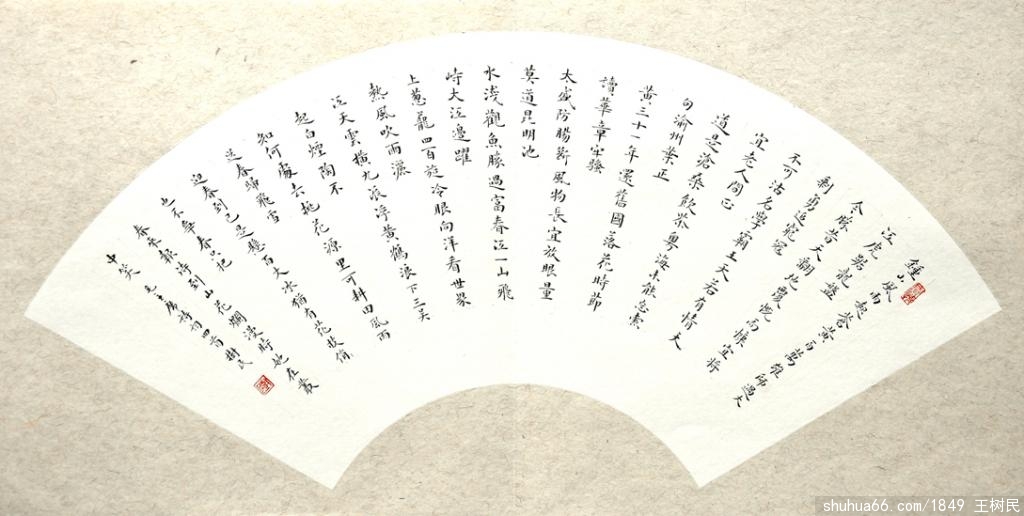 鍾山風雨起蒼黃百萬雄師過大
江虎踞龍盤
今勝昔天翻地覆慨而慷宜將
剩勇追窮寇
不可沽名學霸王天若有情天
宜老人間正
道是滄桑飲茶粵海未能忘索
句渝州葉正
黃三十一年還舊國落花時節
讀華章牢騷
太盛防腸斷風物長宜放眼量
莫道昆明池
水淺觀魚勝過富春江一山飛
峙大江邊躍
上蔥蘢四百旋冷眼向洋看世界
熱風吹雨灑
江天雲橫九派浮黃鶴浪下三吳
起白煙陶不
知何處去桃花源里可耕田風雨
送春歸飛雪
迎春到已是懸百丈冰猶有花枝俏
也不爭春只把
春來報待到山花爛漫時她在叢
中笑 毛主席詩詞四首 樹民
shuhua66.com/1849 王树民